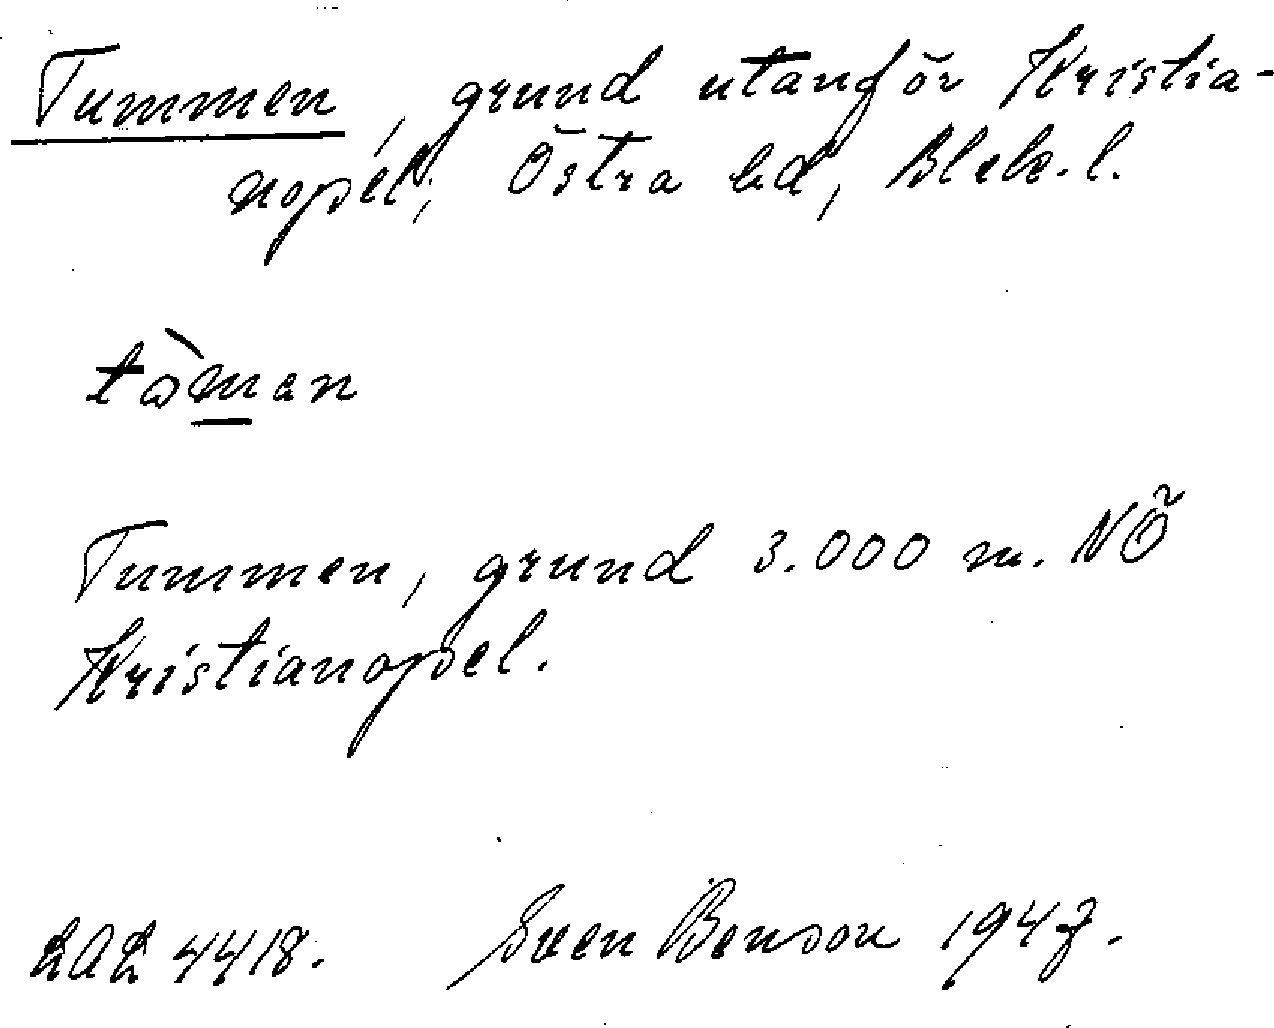 Tummen, grund utanför Kristia-
nopel, Östra hd, Blek. l.
tòman
Tummen, grund 3.000 m. NÖ
Kristianopel.
LAL 4418. Sven Benson 1947.